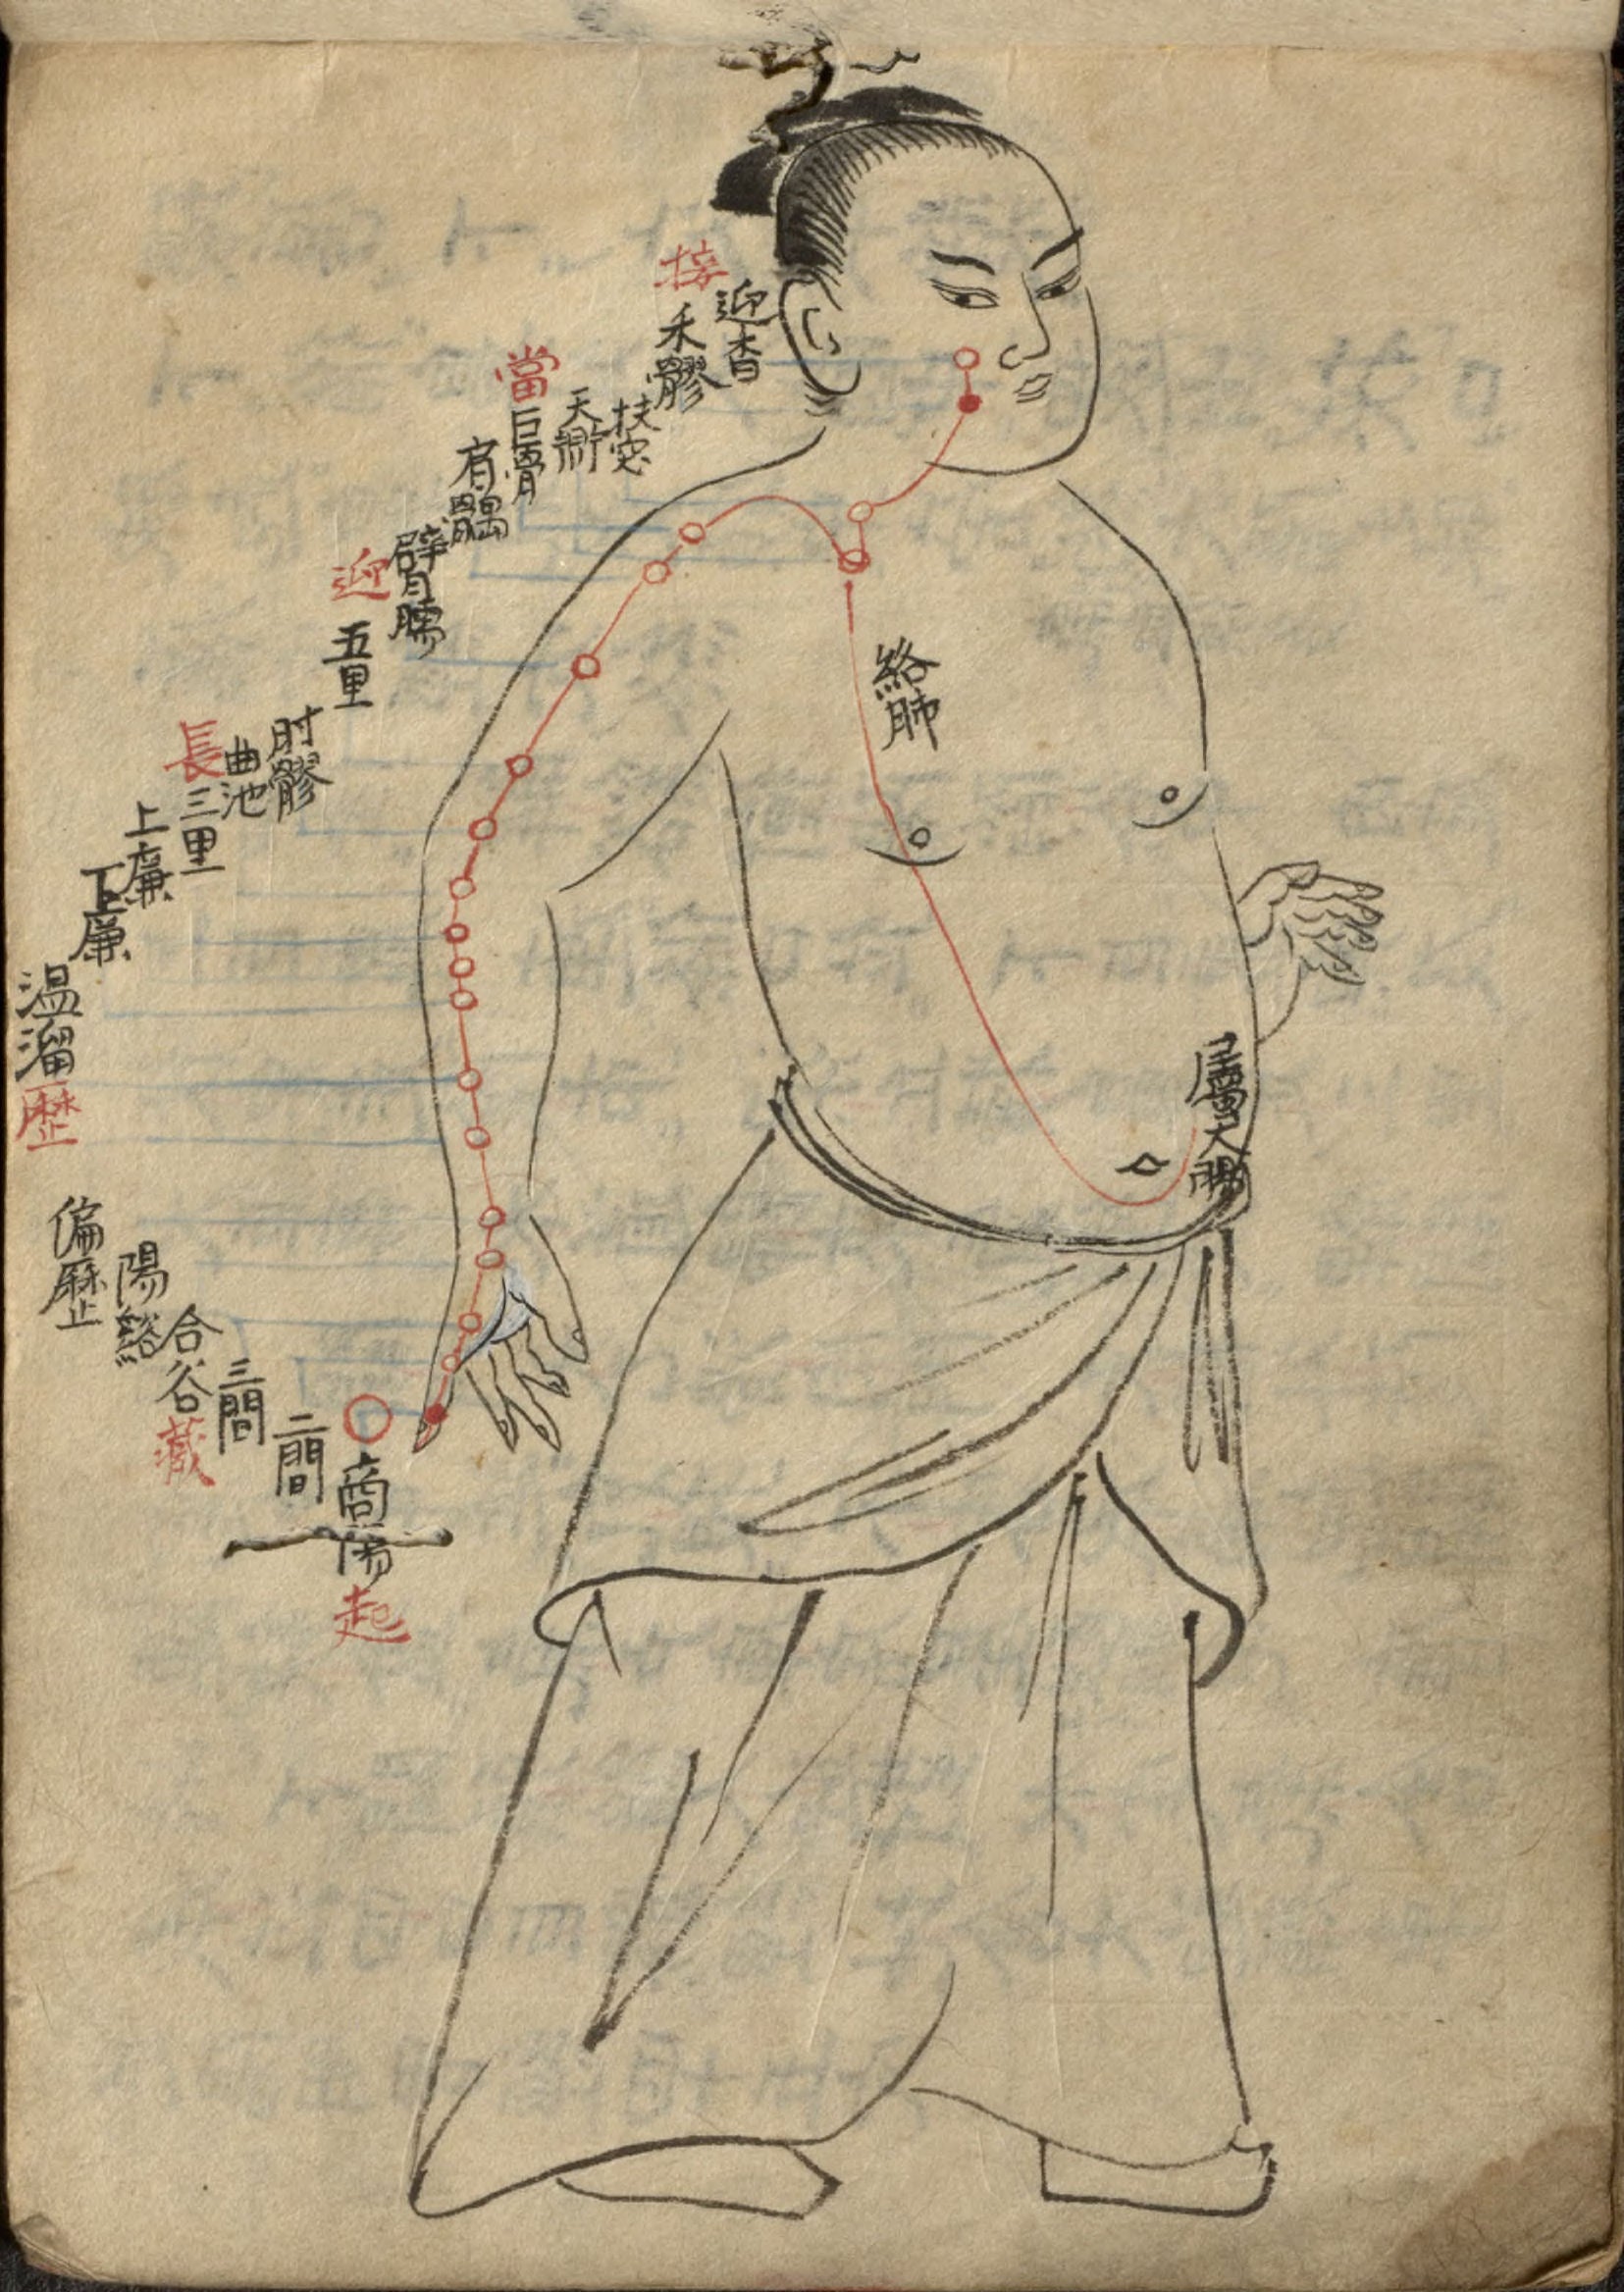 接
迎香
禾髎
扶突
天鼎
當
巨骨
肩髃
臂臑
迎
五里
肘髎
曲池
長
三里
上廉
下廉
溫溜
歷
偏歷
陽谿
合谷
藏
三間
二間
商陽
起
絡肺
屬大腸